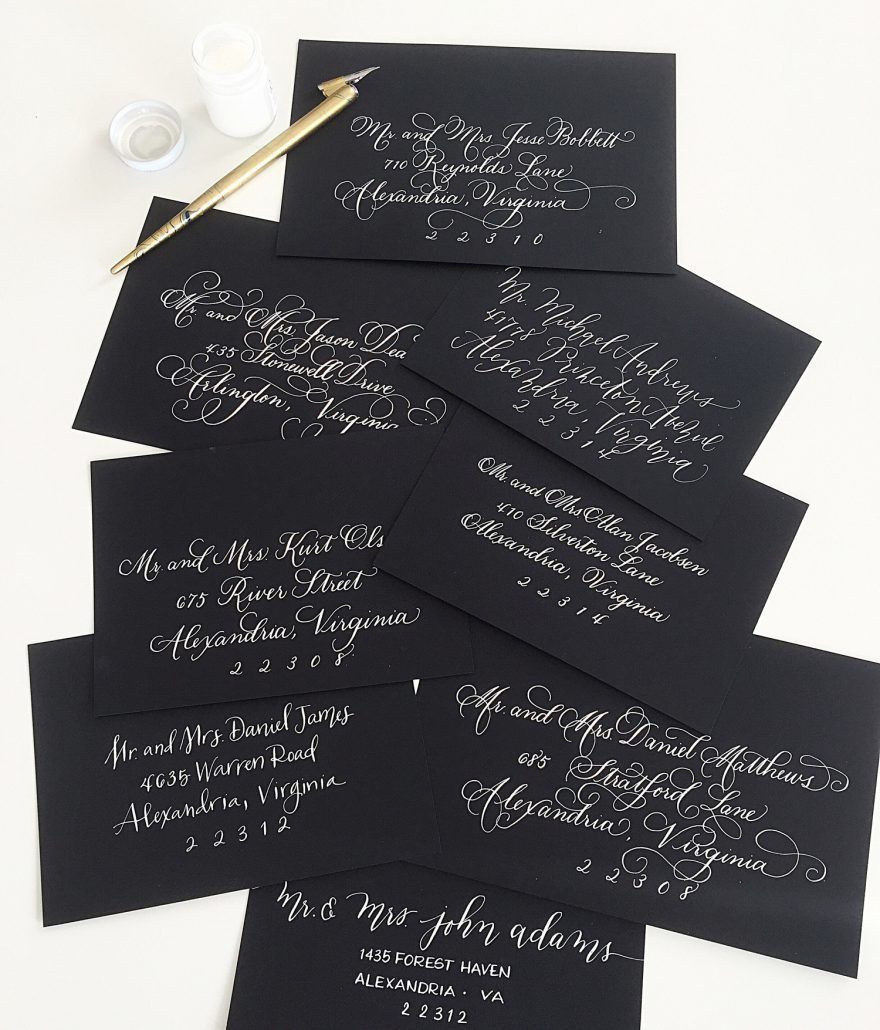 Mr. and Mrs. Jesse Bobbett
710 Reynolds Lane
Alexandria, Virginia
22310
Mr. and Mrs. Jason Dea
435 Stonewell Drive
Arlington, Virginia
Mr. Michael Andrews
41778 Princeton Avenue
Alexandria, Virginia
22314
Mr. and Mrs. Kurt Ols
675 River Street
Alexandria, Virginia
22308
Mr. and Mrs Alan Jacobsen
410 Silverton Lane
Alexandria, Virginia
22314
Mr. and Mrs. Daniel James
4635 Warren Road
Alexandria, Virginia
22312
Mr. and Mrs. Daniel Matthews
685 Stratford Lane
Alexandria, Virginia
22308
Mr. & Mrs. john adams
1435 FOREST HAVEN
ALEXANDRIA · VA
22312